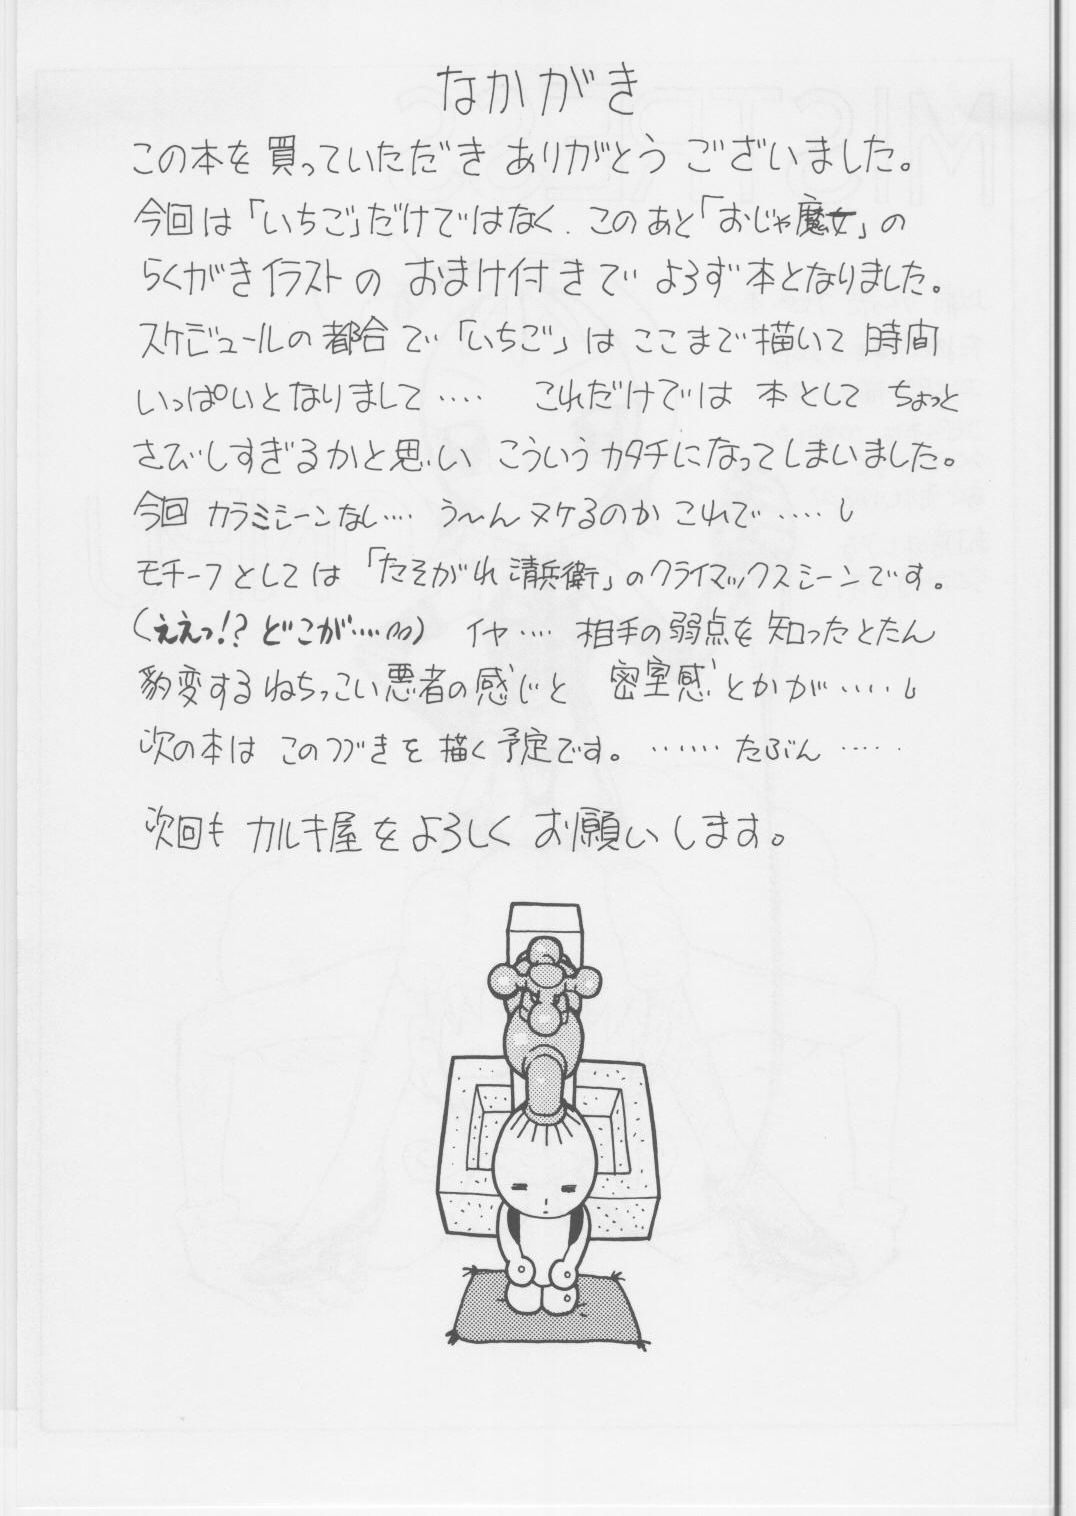 なかがき
この本を買っていただきありがとうございました。
今回は「いちご」だけではなく、このあと「おじゃ魔女」の
らくがきイラストのおまけ付きでよろず本となりました。
スケジュールの都合で「いちご」はここまで描いて時間
いっぱいとなりまして‥‥ これだけでは本としてちょっと
さびしすぎるかと思いこういうカタチになってしまいました。
今回カラミシーンなし‥‥ う〜んヌケるのかこれで‥‥‥
モチーフとしては「たそがれ清兵衛」のクライマックスシーンです。
(ええっ!?どこが‥‥‥) イヤ‥‥ 相手の弱点を知ったとたん
豹変するねちっこい悪者の感じと 密室感とかが‥‥‥
次の本はこのつづきを描く予定です。‥‥‥‥たぶん‥‥‥
次回もカルキ屋をよろしくお願いします。